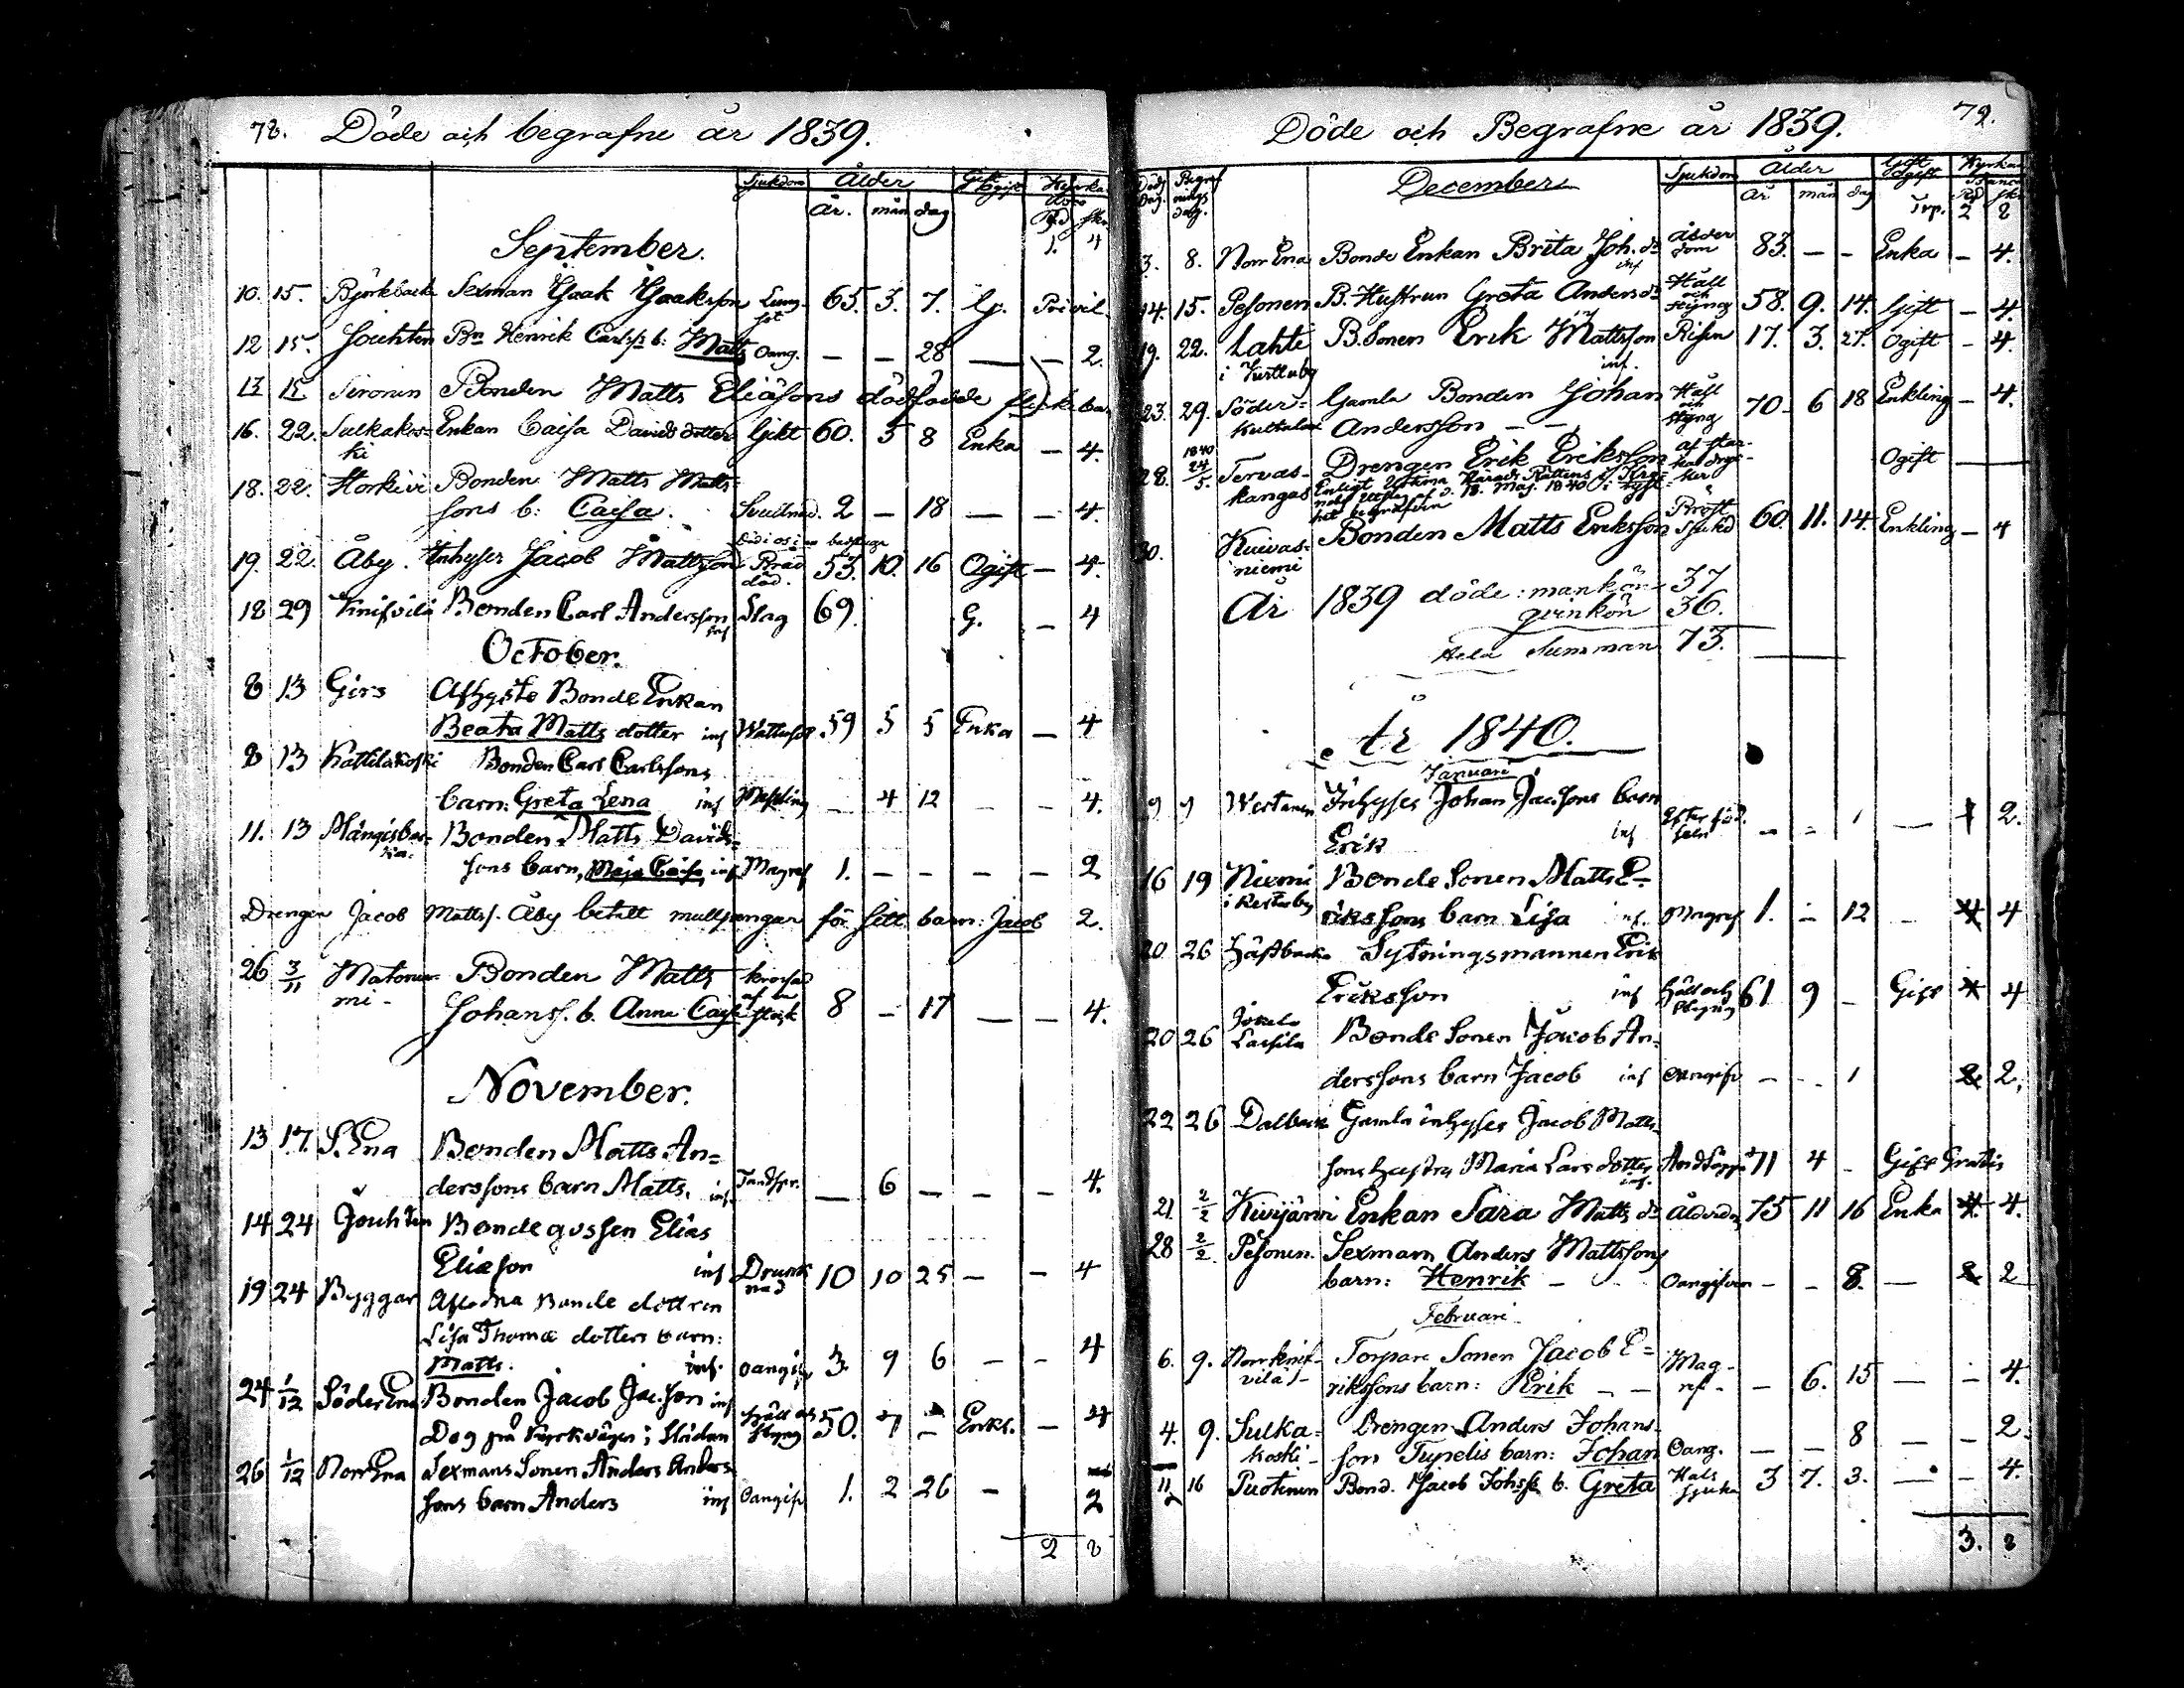 78. Döde och begrafne år 1839.
Sjukdom Ålder Gift Ogift Kyrka
År. mån dag
1. 4
September.
10. 15. Björkbacka Sexman Isaak Isaaksson Lung- 65. 3. 7. G. Privil.
sot
12 15. Jouhten Bn Henrik Carlss b: Matts Oang. — — 28 — — 2.
13 15. Sironen Bonden Matts Eliæsons dödfödde flickebarn
16. 22. Sulkakos- Enkan Caisa Davids dotter Gikt 60. 5 8 Enka — 4.
ki
18. 22. Horkivi Bonden Matts Matts-
sons b: Caisa. 2 — 18 — — 4.
19. 22. Åby. Inhyses Jacob Mattsson Bråd 53. 10. 16 Ogift — 4.
död.
18 29 Knifvilä Bonden Carl Andersson Slag 69. G. — 4
inf
October.
8 13 Girs Afhyste Bonde Enkan
Beata Matts dotter inf Wattusot 59 5 5 Enka — 4
8 13 Kattilakoski Bonden Carl Carlssons
barn: Greta Lena inf Messling — 4 12 — — 4.
11. 13 Bonden Matts Davids-
sons barn, Maja Caisa, inf Magref 1. — — — — 2
Drengen Jacob Mattss. Åby betalt mullpengar för sitt barn: Jacob 2.
26 3/11 Matonie- Bonden Matts krossad
mi- Johanss. b. Anna Caisa af en stock 8 — 17 — — 4.
November.
13 17. S. Ena Bonden Matts An-
derssons barn Matts. inf. Tandspr. — 6 — — — 4.
14 24 Jouhten Bondegossen Elias
Eliæson inf Drunk- 10 10 25 — — 4
nad
19 24 Byggar Afledna Bonde dottren
Lisa Thomæ dotters barn:
Matts. inf. oangif 3. 9 6 — — 4
24 1/12 Söder Ena Bonden Jacob Jacsson inf Håll och 50. 7 — Enkl. — 4
Dog på kyrkvägen i slädan styng
26 1/12 Norr Ena Sexmans Sonen Anders Anders-
sons barn Anders inf Oangif 1. 2 26 — 2
2 8
Döde och Begrafne år 1839. 79.
Döds Dag. Begrafnings dag. December Sjukdom Ålder Gift Ogift Kyrkan
År mån dag Trp. 2 8
3. 8. Norr Ena Bonde Enkan Brita Joh. dr Ålder 83. — — Enka — 4.
inf dom
14. 15. Pesonen B. Hustrun Greta Anders dr Håll och styng 58. 9. 14. Gift — 4.
19. 22. Lahti B. Sonen Erik Mattsson Risen 17. 3. 27. Ogift — 4.
inf.
23. 29. Söder- Gamla Bonden Johan Håll och styng 70. 6 18 Enkling — 4.
Kultalax Andersson — —
28. 1840 24/5. Tervas- Drengen Erik Eriksson af star- Ogift —
kangas
30. Kuivas- Bonden Matts Eriksson Bröst sjukd 60. 11. 14. Enkling — 4
niemi
År 1839 döde: mankön 37
qvinkön 36.
Hela Summan 73.
År 1840.
Januari
9 9 Westanen Inhyses Johan Jacssons barn
Erik inf Efter föd. seln — — 1 — 2.
16 19 Niemi Bonde Sonen Matts E-
rikssons barn Lisa inf. Magref 1. — 12 — 4
20 26 Häftbacka Sytningsmannen Erik
Eriksson inf Håll och styng 61 9 — Gift 4
20 26 Bonde Sonen Jacob An-
derssons barn Jacob inf oangifv — — 1 2.
22 26 Dalbacka Gamla inhyses Jacob Matts-
sons hustru Maria Lars dotter Andtäppa 71 4 — Gift Gratis
inf.
21. 2/2 Kivijärvi Enkan Sara Matts dr Ålderdom 75 11 16 Enka 4.
28 2/2 Pesonen. Sexmann Anders Mattssons
barn: Henrik — Oangifven — — 8. — 2
Februari
6. 9. Norrknif- Torpare Sonen Jacob E-
vilä rikssons barn: Erik — — Mag- ref- — 6. 15 — — 4.
4. 9. Sulka- Drengen Anders Johans-
koski — son Tupelis barn: Johan Oang. — — 8 — — 2.
11 16 Puotinen Bond. Isacob Johss b. Greta Hals sjuka 3 7. 3. — — 4.
3. 8